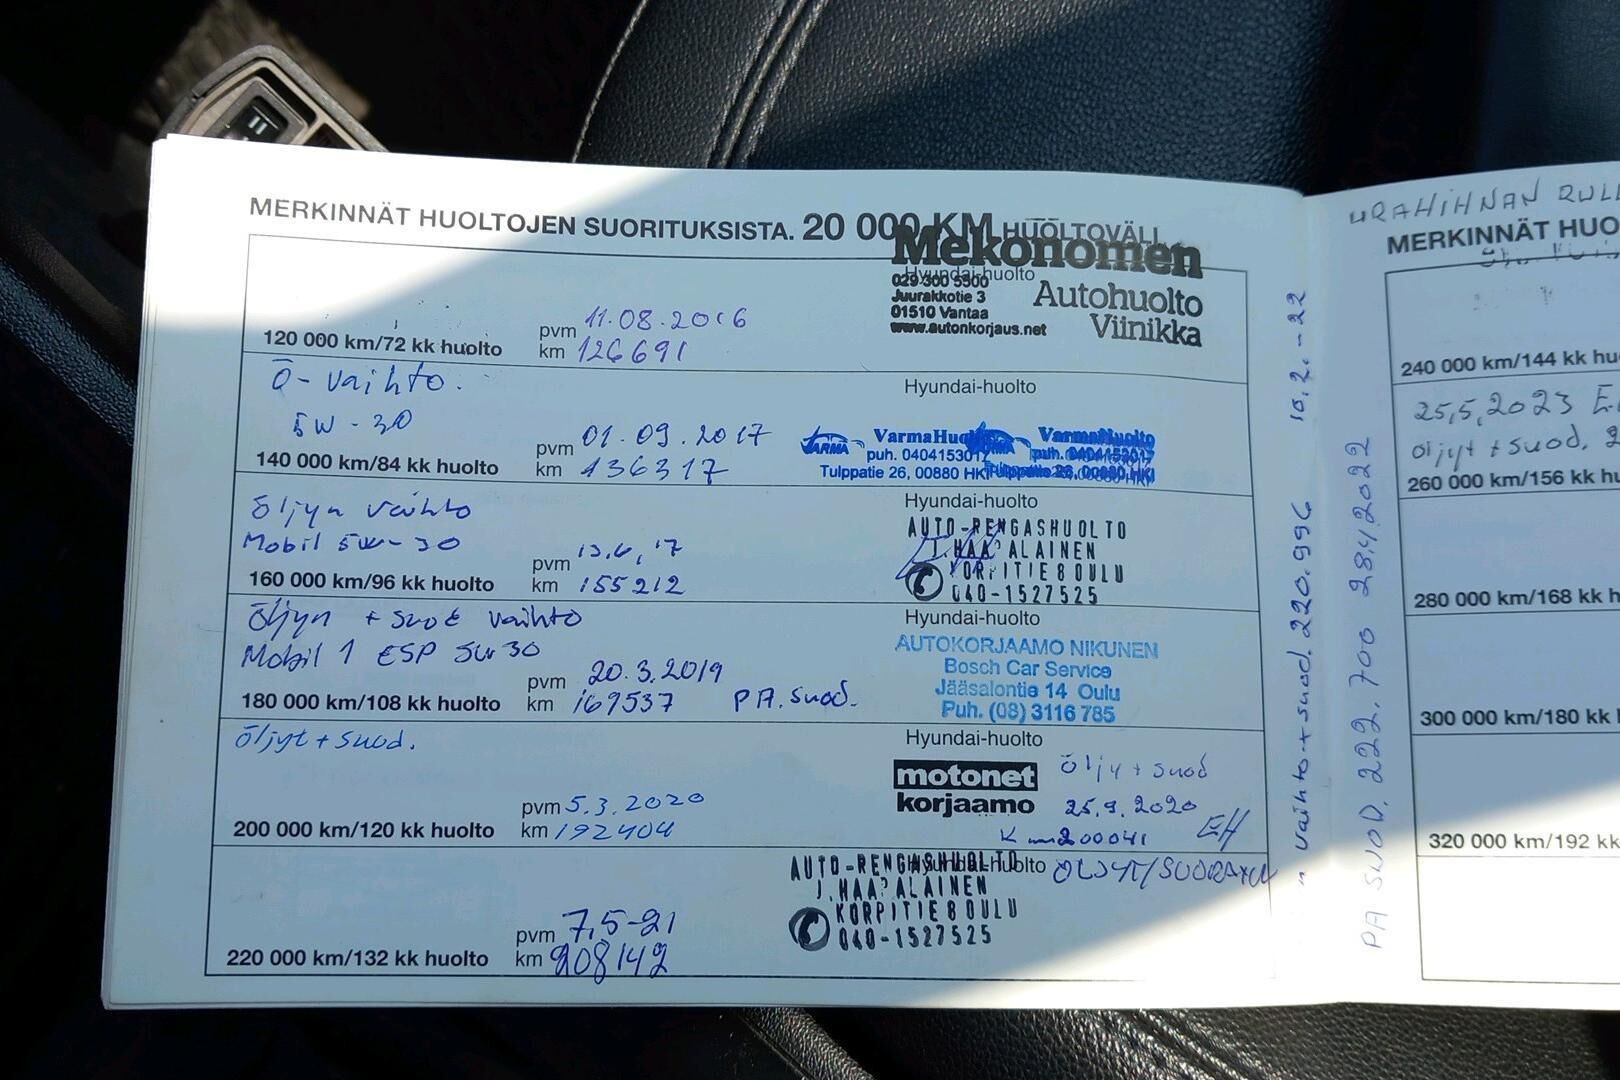 MERKINNÄT HUOLTOJEN SUORITUKSISTA. 20 000 KM HUOLTOVÄLI
Mekonomen
Hyundai-huolto
029 300 5500
Juurakkotie 3
01510 Vantaa
www.autonkorjaus.net
Autohuolto
Viinikka
pvm 11.08.2016
120 000 km/72 kk huolto km 126691
Ö-vaihto.
5W-30
Hyundai-huolto
pvm 01.09.2017
140 000 km/84 kk huolto km 136317
VarmaHuolto VarmaHuolto
puh. 0404153017 puh. 0404153017
Tulppatie 26, 00880 HKI Tulppatie 26, 00880 HKI
Öljyn vaihto
Mobil 5W-30
Hyundai-huolto
pvm 13.6.17
160 000 km/96 kk huolto km 155212
AUTO-RENGASHUOLTO
J. HAAPALAINEN
KORPITIE 8 OULU
040-1527525
Öljyn + suod vaihto
Mobil 1 ESP 5W30
Hyundai-huolto
pvm 20.3.2019
180 000 km/108 kk huolto km 169537 PA.suod.
AUTOKORJAAMO NIKUNEN
Bosch Car Service
Jääsalontie 14 Oulu
Puh. (08) 3116 785
Öljyt + suod.
Hyundai-huolto
pvm 5.3.2020
200 000 km/120 kk huolto km 192404
motonet
korjaamo
Öljy + suod
25.9.2020
Km 200041 EH
Hyundai-huolto
pvm 7,5-21
220 000 km/132 kk huolto km 208142
AUTO-RENGASHUOLTO
J. HAAPALAINEN
KORPITIE 8 OULU
040-1527525
vaihto + suod. 220.996 10.2.-22
PA SUOD. 222.700 28.4.2022
MERKINNÄT HUO
240 000 km/144 kk hu
25,5,2023
öljyt + suod.
260 000 km/156 kk hu
280 000 km/168 kk h
300 000 km/180 kk
320 000 km/192 kk